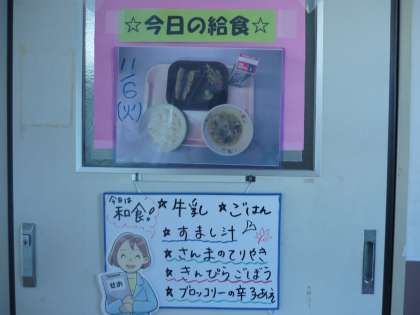 ☆今日の給食☆
11/6(火)
今日は
和食!
☆牛乳 ☆ごはん
☆すまし汁
☆さんまのてりやき
☆きんぴらごぼう
☆ブロッコリーの辛子あえ